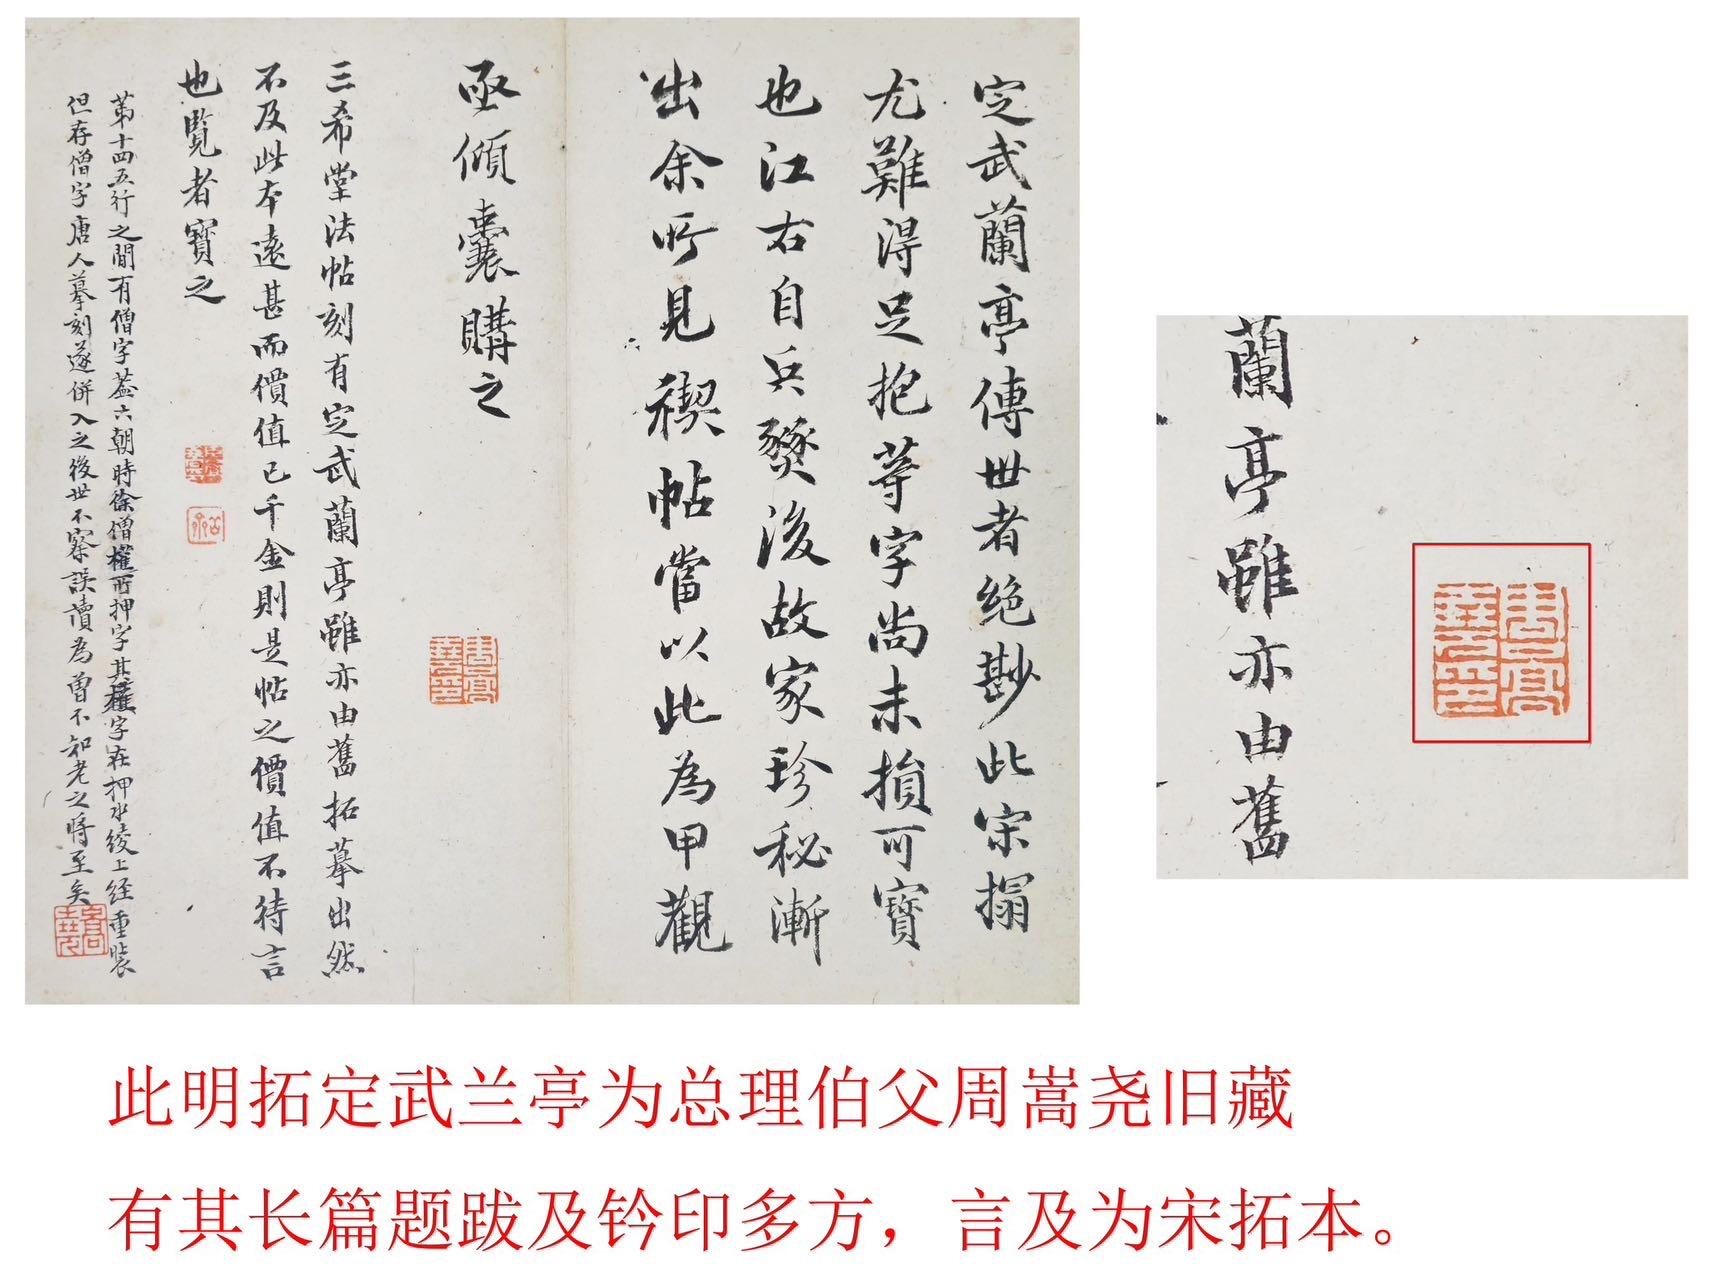 定武蘭亭傳世者絶尠此宋搨
尤難得足抱等字尚未損可寶
也江右自兵燹後故家珍秘漸
出余所見禊帖當以此為甲觀
亟傾囊購之
三希堂法帖刻有定武蘭亭雖亦由舊拓摹出然
不及此本遠甚而價值已千金則是帖之價值不待言
也覧者寶之
苐十四五行之間有僧字葢六朝時徐僧權所押字其權字在押水綾上經重裝
但存僧字唐人摹刻遂併入之後世不察誤讀為曾不知老之將至矣
周嵩堯印
嵩堯
蘭亭雖亦由舊
周嵩堯印
此明拓定武兰亭为总理伯父周嵩尧旧藏
有其长篇题跋及钤印多方，言及为宋拓本。